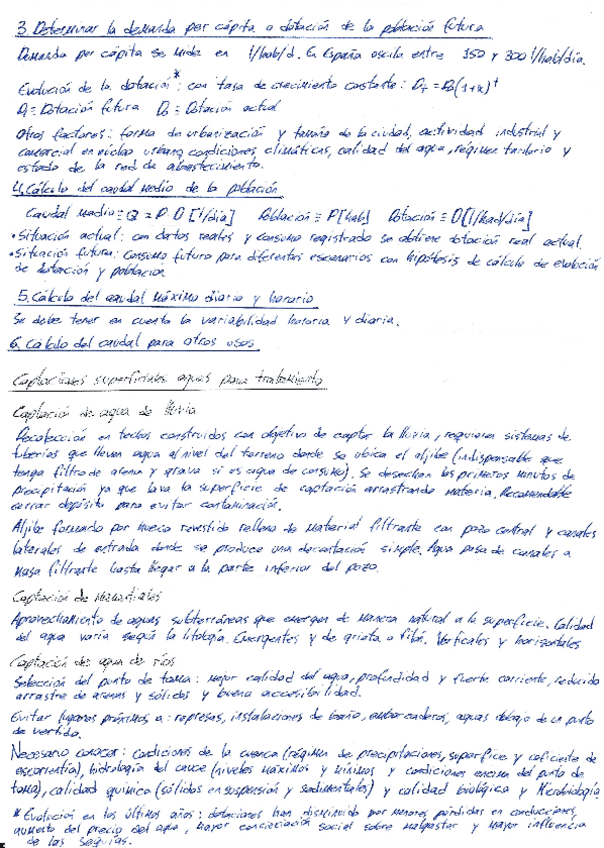 3. Determinar la demanda per cápita o dotación de la población futura
Demanda per cápita se mide en l/hab/d. En España oscila entre 150 y 300 l/hab/día.
Evolución de la dotación*: con tasa de crecimiento constante: Dt = D0(1+x)^t
Dt = Dotación futura D0 = Dotación actual
Otros factores: forma de urbanización y tamaño de la ciudad, actividad industrial y
comercial en núcleo urbano, condiciones climáticas, calidad del agua, régimen tarifario y
estado de la red de abastecimiento.
4. Cálculo del caudal medio de la población
Caudal medio ≡ Q = P·D [l/día] Población ≡ P[hab] Dotación ≡ D[l/hab/día]
• Situación actual: con datos reales y consumo registrado se obtiene dotación real actual.
• Situación futura: consumo futuro para diferentes escenarios con hipótesis de cálculo de evolución
de dotación y población
5. Cálculo del caudal máximo diario y horario
Se debe tener en cuenta la variabilidad horaria y diaria.
6. Cálculo del caudal para otros usos
Captaciones superficiales aguas para tratamiento
Captación de agua de lluvia
Recolección en techos construidos con objetivo de captar la lluvia, requieren sistemas de
tuberías que lleven agua al nivel del terreno donde se ubica el aljibe (indispensable que
tenga filtro de arena y grava si es agua de consumo). Se desechan los primeros minutos de
precipitación ya que lava la superficie de captación arrastrando materia. Recomendable
cerrar depósito para evitar contaminación.
Aljibe formado por hueco revestido relleno de material filtrante con pozo central y canales
laterales de entrada donde se produce una decantación simple. Agua pasa de canales a
masa filtrante hasta llegar a la parte inferior del pozo.
Captación de Manantiales
Aprovechamiento de aguas subterráneas que emergen de manera natural a la superficie. Calidad
del agua varía según la litología. Emergentes y de grieta o filón. Verticales y horizontales
Captación de agua de ríos
Selección del punto de toma: mejor calidad del agua, profundidad y fuerte corriente, reducido
arrastre de arenas y sólidos y buena accesibilidad.
Evitar lugares próximos a: represas, instalaciones de baño, embarcaderos, aguas abajo de un punto
de vertido.
Necesario conocer: condiciones de la cuenca (régimen de precipitaciones, superficie y coeficiente de
escorrentía), hidrología del cauce (niveles máximos y mínimos y condiciones encima del punto de
toma), calidad química (sólidos en suspensión y sedimentales) y calidad biológica y Microbiología.
* Evolución en los últimos años: dotaciones han disminuido por menores pérdidas en conducciones,
aumento del precio del agua, mayor concienciación social sobre malgastar y mayor influencia
de las sequías.